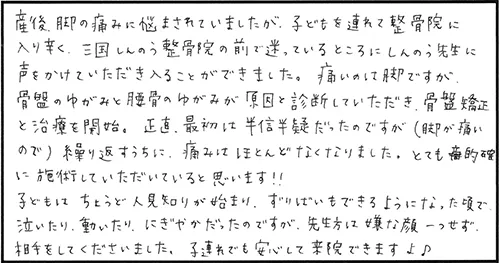 産後、脚の痛みに悩まされていましたが、子どもを連れて整骨院に
入り辛く、三国しんのう整骨院の前で迷っているところにしんのう先生に
声をかけていただき入ることができました。痛いのは脚ですが、
骨盤のゆがみと腰骨のゆがみが原因と診断していただき、骨盤矯正
と治療を開始。正直、最初は半信半疑だったのですが(脚が痛い
ので)繰り返すうちに、痛みはほとんどなくなりました。とても的確
に施術していただいていると思います!!
子どもはちょうど人見知りが始まり、ずりばいもできるようになった頃で、
泣いたり、動いたり、にぎやかだったのですが、先生方は嫌な顔一つせず、
相手をしてくださいました。子連れでも安心して来院できますよ♪